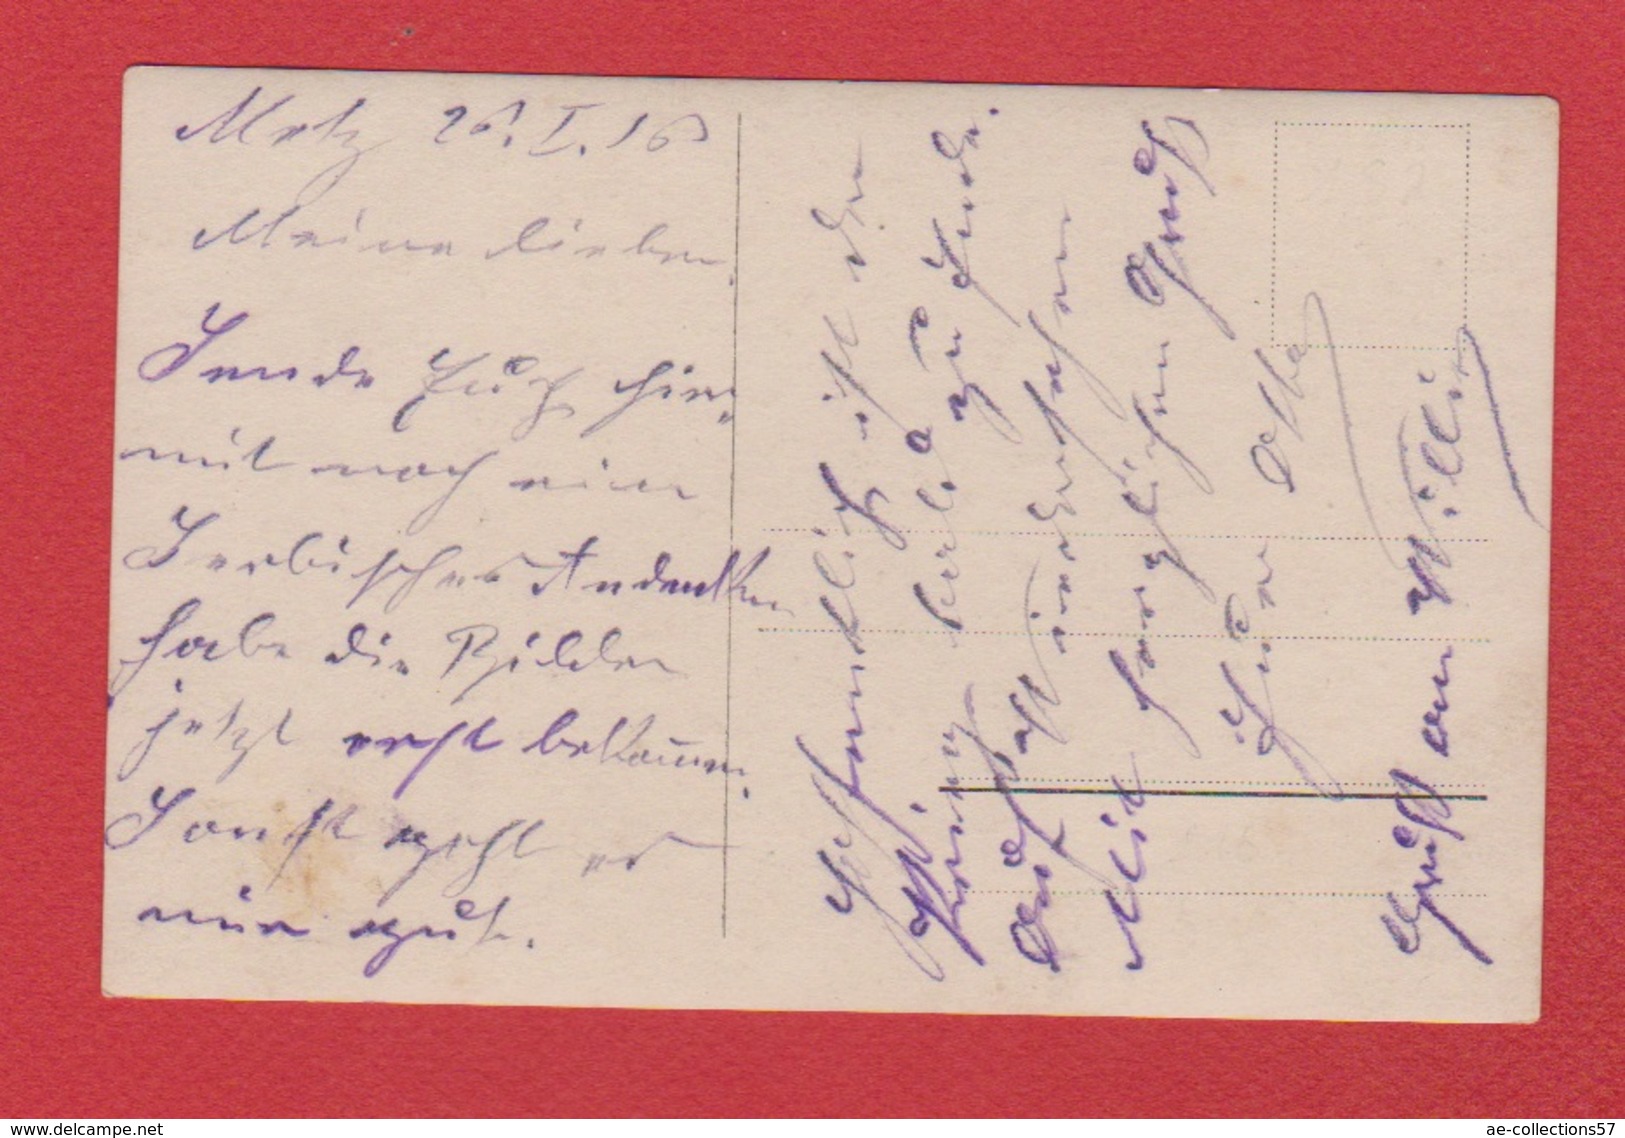 Metz 26.I.16
Meine Lieben.
Sende Euch hier-
mit noch ein
Serbisches Andenken
habe die Bilder
jetzt erst bekommen.
Sonst geht es
mir gut.
Hoffentlich ist der
Krieg bald zu Ende.
Auf Wiedersehen
Mit herzlichem Gruß
Euer Otto
Gruß an Willi
www.delcampe.net
ae-collections57